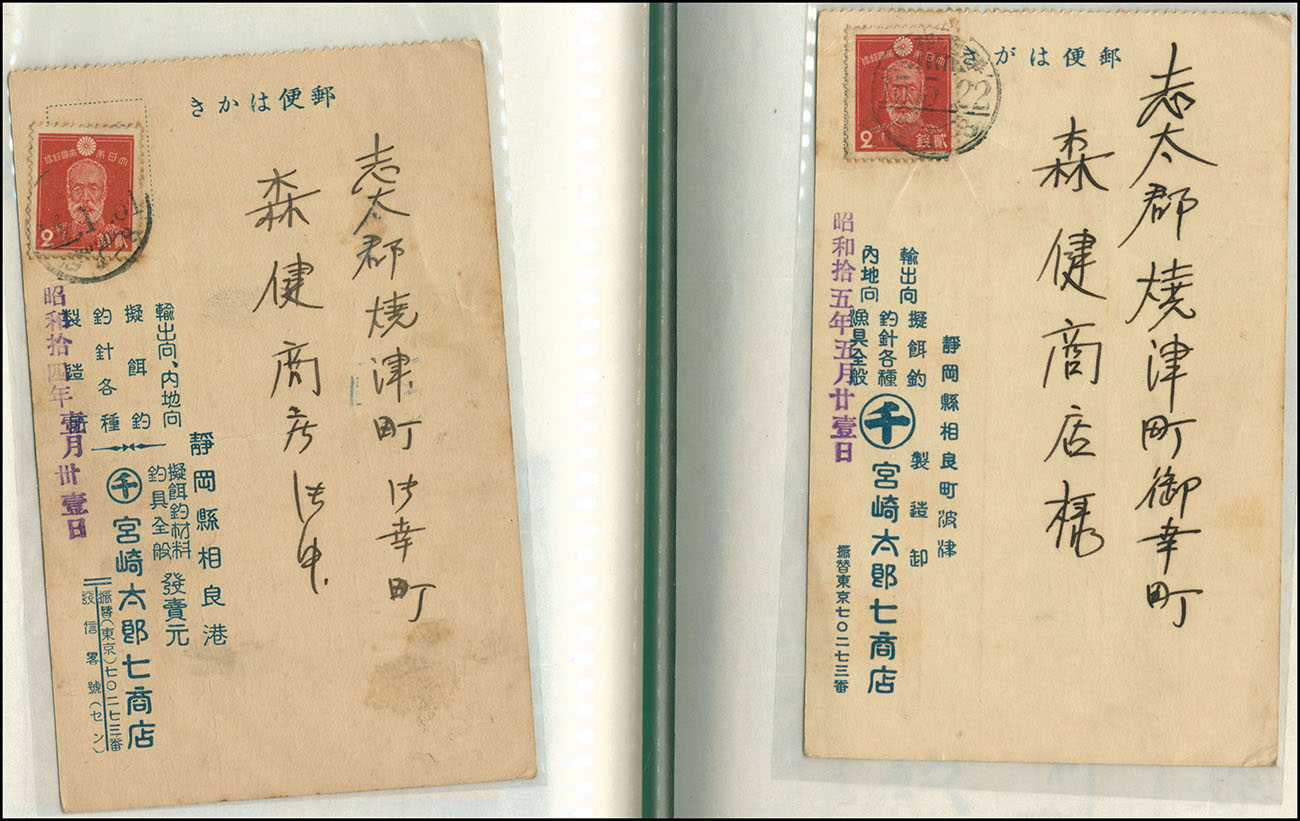 きかは便郵
大日本帝國郵便
2
貳錢
志太郡燒津町御幸町
森健商店
靜岡縣相良港
擬餌釣材料
釣具全般
發賣元
千
宮崎太郎七商店
振替(東京)七〇二七三番
發信畧號(セン)
輸出向、內地向
擬餌釣
釣針各種
製造
昭和拾四年壹月卅壹日
きがは便郵
2
貳錢
22
志太郡燒津町御幸町
森健商店様
靜岡縣相良町波津
輸出向
內地向
擬餌釣
釣針各種
漁具全般
製造卸
千
宮崎太郎七商店
振替東京七〇二七三番
昭和拾五年五月廿壹日